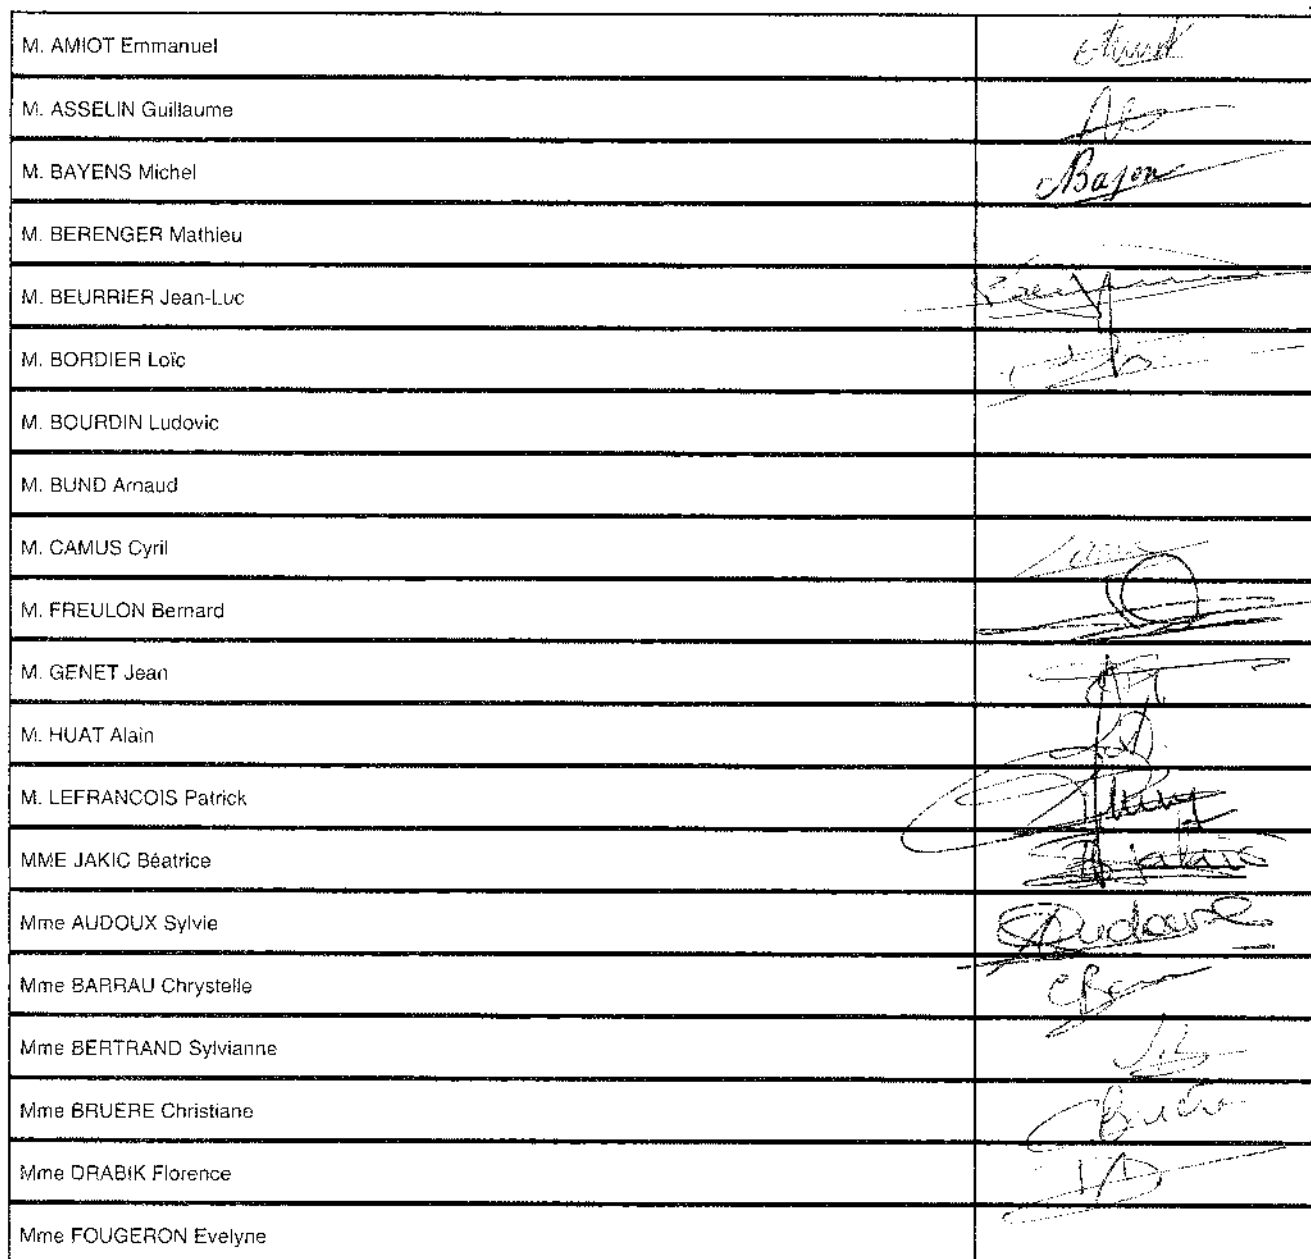 M. AMIOT Emmanuel
M. ASSELIN Guillaume
M. BAYENS Michel
M. BERENGER Mathieu
M. BEURRIER Jean-Luc
M. BORDIER Loïc
M. BOURDIN Ludovic
M. BUND Arnaud
M. CAMUS Cyril
M. FREULON Bernard
M. GENET Jean
M. HUAT Alain
M. LEFRANCOIS Patrick
MME JAKIC Béatrice
Mme AUDOUX Sylvie
Mme BARRAU Chrystelle
Mme BERTRAND Sylvianne
Mme BRUERE Christiane
Mme DRABIK Florence
Mme FOUGERON Evelyne